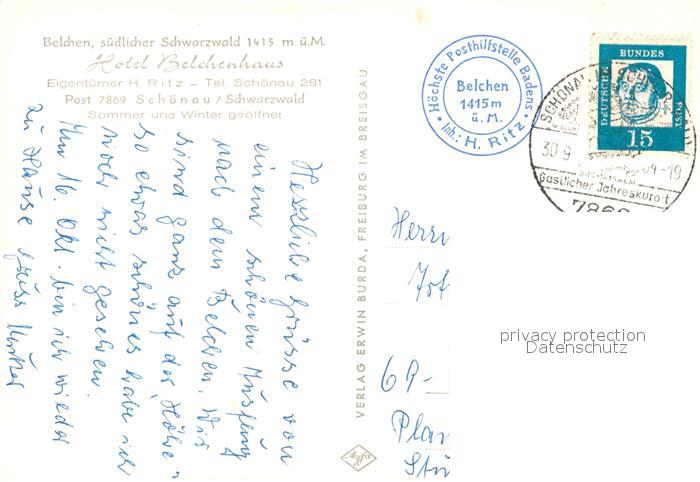 Belchen, südlicher Schwarzwald 1415 m ü.M.
Hotel Belchenhaus
Eigentümer H. Ritz – Tel. Schönau 281
Post 7869 Schönau / Schwarzwald
Sommer und Winter geöffnet
Herzliche Grüsse von
einem schönen Ausflug
nach dem Belchen. Wir
sind ganz auf der „Höhe"
so etwas schönes habe ich
noch nicht gesehen.
Am 16. Okt. bin ich wieder
zu Hause Gruss Mutter
VERLAG ERWIN BURDA, FREIBURG IM BREISGAU
Agfa
• Höchste Posthilfstelle Badens •
Belchen
1415 m
ü. M.
Inh.: H. Ritz
DEUTSCHE
BUNDES
POST
15
SCHÖNAU IM SCHWARZWALD
30.9
04-19
Gastlicher Jahreskurort
7869
Herrn
69-
privacy protection
Datenschutz